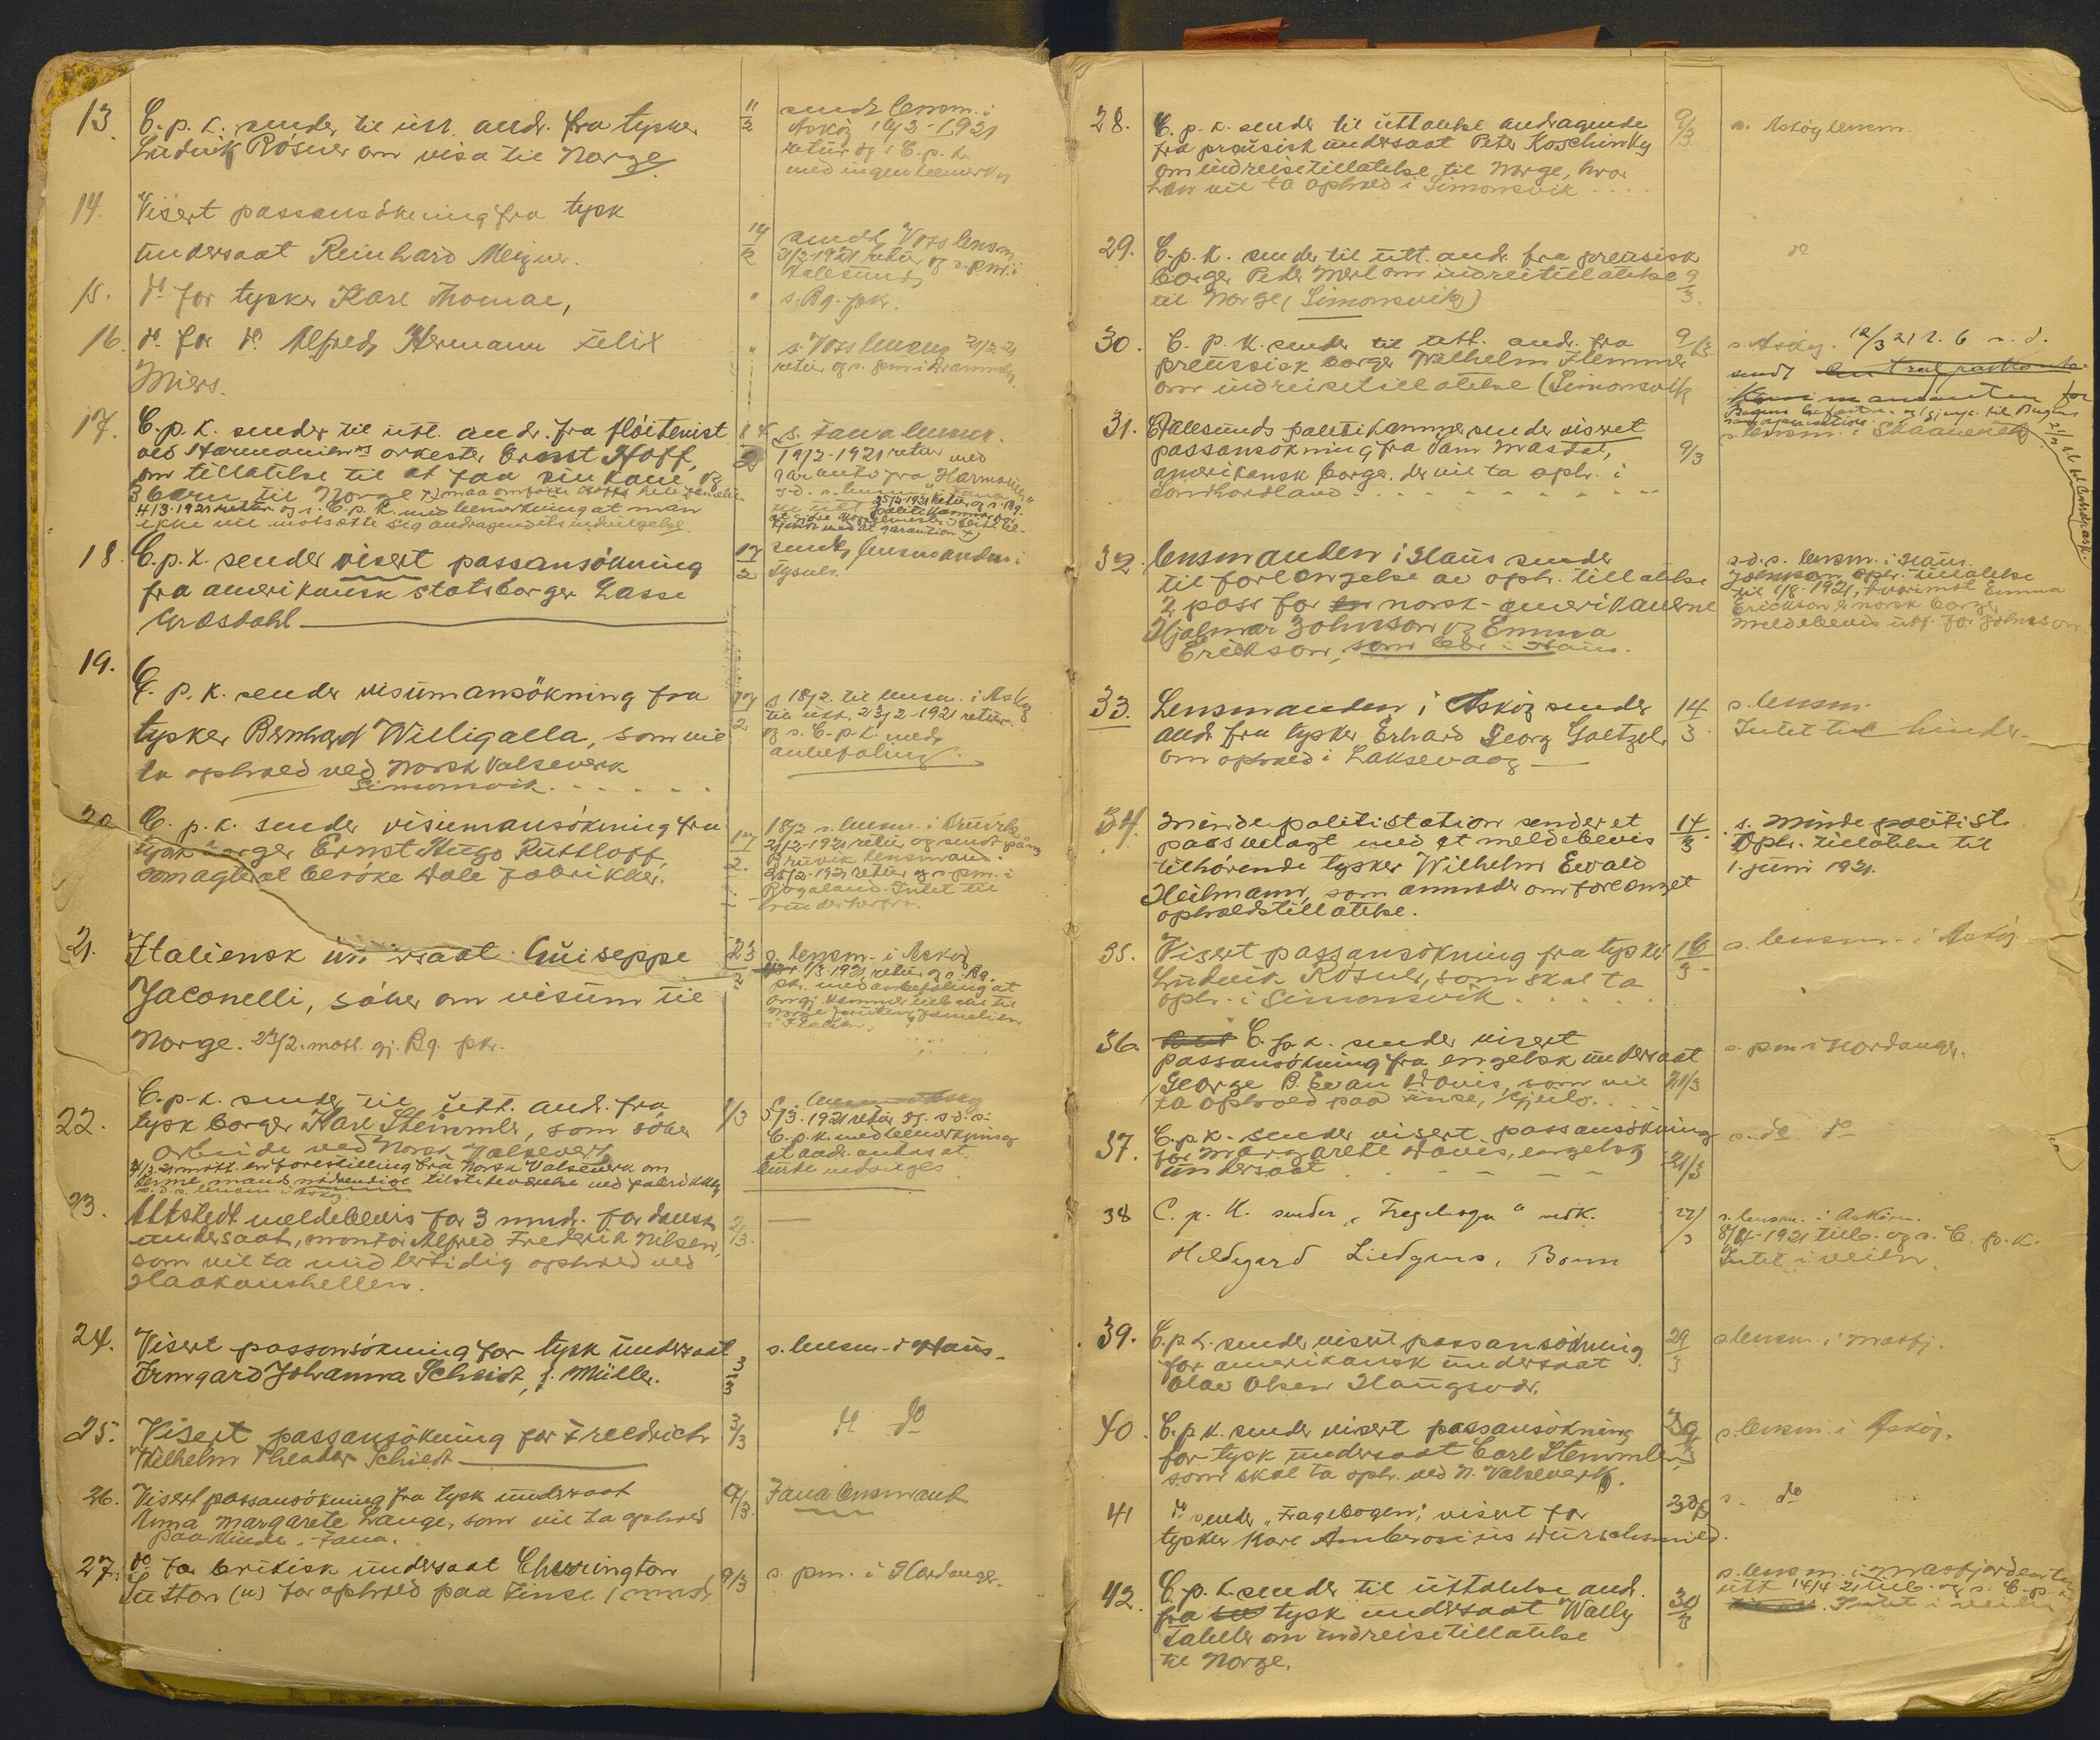 13. C. p. k. sender til utt. andr. fra tysker
Ludvik Rösner om visa til Norge
11/2
sendt lensm. i
Askøy 12/2-1921
retur og s. C. p. k.
med ingen bemerkn
14. Visert passansökning fra tysk
undersaat Reinhard
14/2
sendt Voss lensm.
21/2-1921 retur og s. pm. i
Aalesund
15. do for tysker Karl Thomae,
" s. Bg. pkr.
16. do for do Alfred Hermann Felix
Miers.
" s. Voss lensm 21/2-21
retur og s. pm i Drammen.
17. C. p. k. sender til utt. andr. fra flöitenist
ved Harmoniens orkester Ernst Hoff,
om tillatelse til at faa sin kone og
3 barn til Norge
4/3-1921 retur og s. C. p. k. med bemerkning at man
ikke vil motsætte sig andragendets indvilgelse.
s. Fana lensm.
19/2-1921 retur med
garanti fra Harmonien
18. C. p. k. sender visert passansökning
fra amerikansk statsborger Lasse
Græsdahl
17/2
sendt lensmanden i
Tysnes.
19. C. p. k. sender visumansökning fra
tysker Bernhard Willigalla, som vil
ta ophold ved Norsk Valseverk
Simonsvik
17/2
s 18/2 til lensm. i Askøy
til utt. 23/2-1921 retur
og s. C. p. k. med
anbefaling.
20. C. p. k. sender visumansökning fra
tysk borger Ernst Hugo Ruttloff,
som agter at besöke Dale fabrikker.
17/2
18/2 s. lensm. i Bruvik
21/2-1921 retur og sendt paany
Bruvik lensmand.
25/2-1921 retur og s. pm. i
Rogaland. Intet til
hinder herfra.
21. Italiensk undersaat Guiseppe
Jaconelli, söker om visum til
Norge. 23/2. mott. gj. Bg. pkr.
23/2
s. lensm. i Askøy
1/3-1921 retur og s. Bg.
pkr. med anbefaling at
Norge foruten familien
i Italien.
22. C. p. k. sender til utt. andr. fra
tysk borger Karl Stemmler, som söker
arbeide ved Norsk Valseverk
4/3-21 mott. en forestilling fra Norsk Valseverk om
denne mands nödvendige tilstedeværelse ved fabrikken
s. d. s. lensm. i Askøy.
1/3
5/3-1921 retur og s. d. s.
C. p. k. med bemerkning
at andr. antas at
burde indvilges
23. Utstedt meldebevis for 3 mnd. for dansk
undersaat, montör Alfred Frederik Nilsen,
som vil ta midlertidig ophold ved
Haakonshellen.
2/3.
24. Visert passansökning for tysk undersaat
Irmgard Johanna Scheidt, f. Müller.
3/3
s. lensm. i Haus.
25. Visert passansökning for Friedrich
Wilhelm Theodor Schiedt
3/3
do do
26. Visert passansökning fra tysk undersaat
Anna Margarete Lange, som vil ta ophold
paa Minde, Fana.
9/3.
Fana lensmand
27. do for britisk undersaat Cherrington
Sutton (u) for ophold paa Finse 1 mnd.
9/3
s. pm. i Hardanger.
28. C. p. k. sender til uttalelse andragende
fra prøisisk undersaat Peter Koschinsky
om indreisetillatelse til Norge, hvor
han vil ta ophold i Simonsvik
9/3
s. Askøy lensm.
29. C. p. k. sender til utt. andr. fra preusisk
borger Peter Merl om indreisetillatelse
til Norge (Simonsvik)
9/3.
do
30. C. p. k. sender til utt. andr. fra
preussisk borger Wilhelm Flemmer
om indreisetillatelse (Simonsvik
9/3
s. Askøy. 12/3 21 r. & s. d.
sendt Centralpaskontor
Kommandanten for
31. Aalesunds politikammer sender visert
passansökning fra Sam Mastal,
amerikansk borger, der vil ta oph. i
Söndhordland
9/3
s. lensm. i Skaanevik
32. Lensmanden i Haus sender
til forlængelse av oph. tillatelse
2 pass for norsk-amerikanerne
Hjalmar Johnson og Emma
Erickson, som bor i Haus.
s. d. s. lensm. i Haus.
Johnson oph. tillatelse
til 1/8-1921, hvorimot Emma
Erickson er norsk borger
Meldebevis utf. for Johnson
33. Lensmanden i Askøy sender
andr. fra tysker Erhard Georg Goetzel
om ophold i Laksevaag
14/3
s. lensm.
Intet til hinder.
34. Minde politistation sender et
pass vedlagt med et meldebevis
tilhörende tysker Wilhelm Ewald
Heilmann, som anmoder om forlænget
opholdstillatelse.
14/3.
s. Minde politist.
Oph. tillatelse til
1. juni 1921.
35. Visert passansökning fra tysker
Ludvik Rösner, som skal ta
oph. i Simonsvik
16/3
s. lensm. i Askøy
36. C. p. k. sender visert
passansökning fra engelsk undersaat
George B. Evan Davis, som vil
ta ophold paa Finse,
21/3
s. pm i Hardanger.
37. C. p. k. sender visert passansökning
for Margarete Davis, engelsk
undersaat
21/3
s. do do
38 C. p. k. sender „Fragebogen" vedk.
Hildegard Liedgens, Bonn
22/3
s. lensm. i Asköy.
8/4-1921 tilb. og s. C. p. k.
Intet i veien.
39. C. p. k. sender visert passansökning
for amerikansk undersaat
Olav Olsen Haugsvær.
29/3
s lensm. i Masfj.
40. C. p. k. sender visert passansökning
for tysk undersaat Carl Stemmler,
som skal ta oph. ved N. Valseverk.
29/3
s. lensm. i Askøy.
41 do sender „Fragebogen", visert for
tysker Karl Ambrosius Dürschmied.
30/3
s. do
42. C. p. k. sender til uttalelse andr.
fra tysk undersaat Wally
om indreisetillatelse
til Norge.
30/3
s. lensm. i Masfjorden til
utt 14/4-21 tilb. og s. C. p. k.
Intet i veien